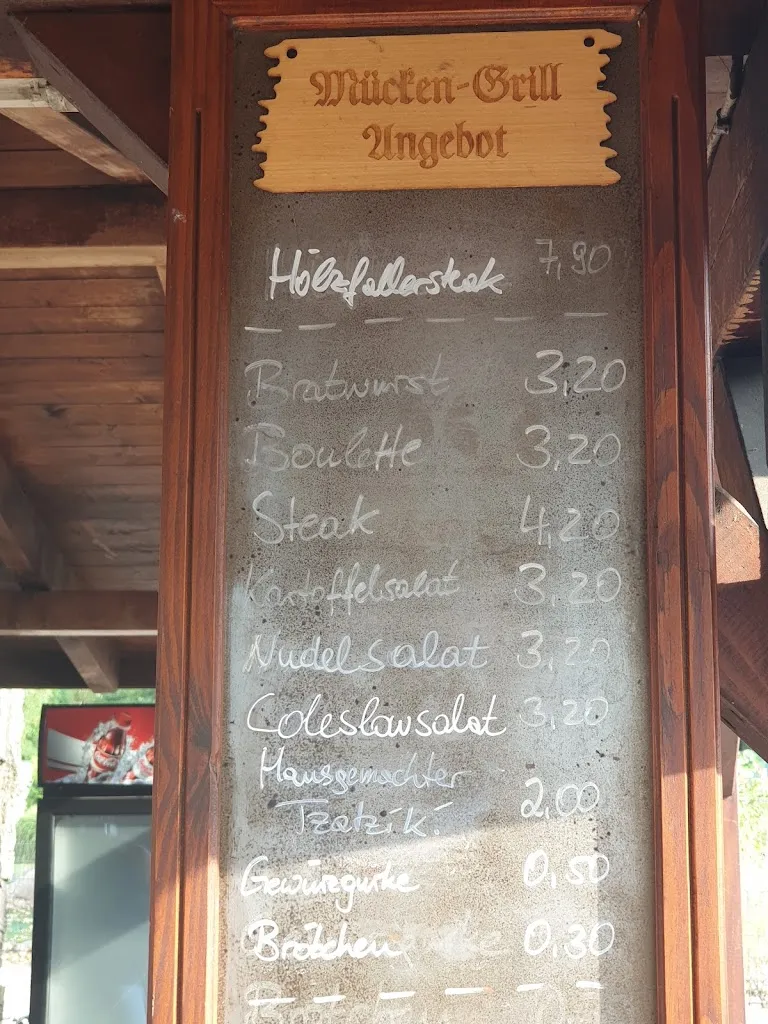 Mücken-Grill
Angebot
Holzfällersteak 7,90
Bratwurst 3,20
Boulette 3,20
Steak 4,20
Kartoffelsalat 3,20
Nudelsalat 3,20
Coleslawsalat 3,20
Hausgemachter
Tzatziki 2,00
Gewürzgurke 0,50
Brötchen 0,30